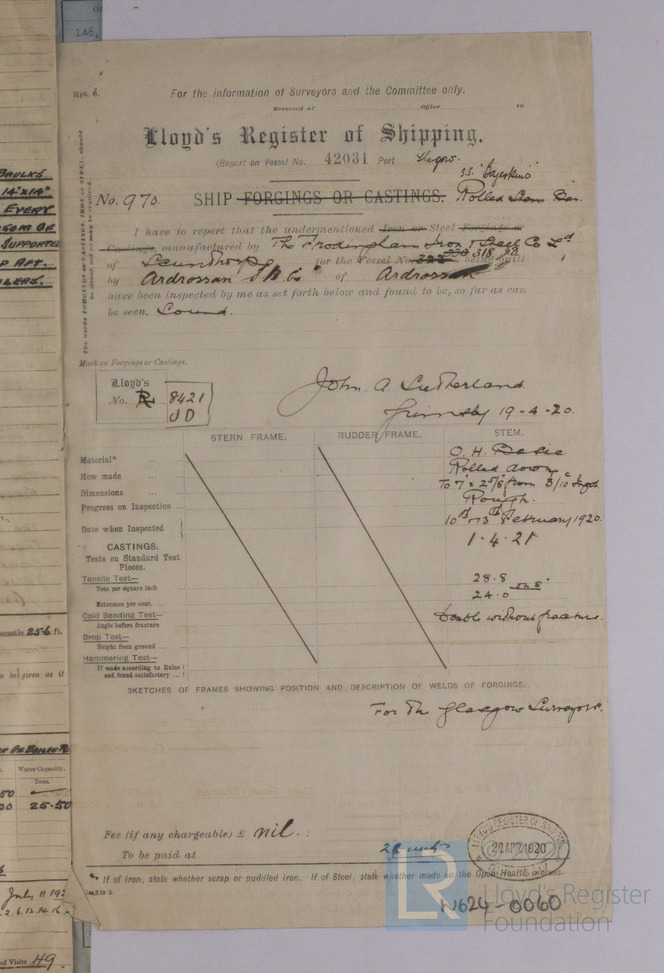 146,
Rpt. 6.
For the information of Surveyors and the Committee only.
Received at Office 19
Lloyd's Register of Shipping.
(Report on Vessel No. 42031 Port Glasgow.
No. 970. SHIP FORGINGS OR CASTINGS. Rolled Stem Bar.
I have to report that the undermentioned Iron or Steel Forgings or
Castings, manufactured by The Frodingham Iron & Steel Co Ld
of Scunthorpe for the Vessel No. 318 being built
by Ardrossan S.B. Co of Ardrossan
have been inspected by me as set forth below and found to be, so far as can
be seen, Sound.
The words FORGINGS or CASTINGS, IRON or STEEL, should
be struck out as may be required.
Mark on Forgings or Castings.
Lloyd's
No. R 8421
JD
John A Sutherland
Grimsby 19-4-20.
STERN FRAME. RUDDER FRAME. STEM.
Material* O.H. Basic
How made Rolled down
Dimensions To 7" x 2 5/8" from Ingot
Progress on Inspection Rough.
Date when Inspected 10th February 1920.
1.4.21
CASTINGS.
Tests on Standard Test
Pieces.
Tensile Test—
Tons per square inch 28.8
Extension per cent. 24.0 on 8"
Cold Bending Test—
Angle before fracture Double without fracture.
Drop Test—
Height from ground
Hammering Test—
If made according to Rules
and found satisfactory
SKETCHES OF FRAMES SHOWING POSITION AND DESCRIPTION OF WELDS OF FORGINGS.
For The Glasgow Surveyors.
Fee (if any chargeable) £ nil.
To be paid at
* If of Iron, state whether scrap or puddled iron. If of Steel, state whether made on the Open Hearth process.
LLOYD'S REGISTER OF SHIPPING
APR 1920
LR
Lloyd's Register
Foundation
W624-0060
BAULKS
14"x14"
EVERY
SUPPORTED
AFT.
25.6 ft.
be given as it
Water Capacity.
Tons.
25.50
July 11 192
of Visits 49